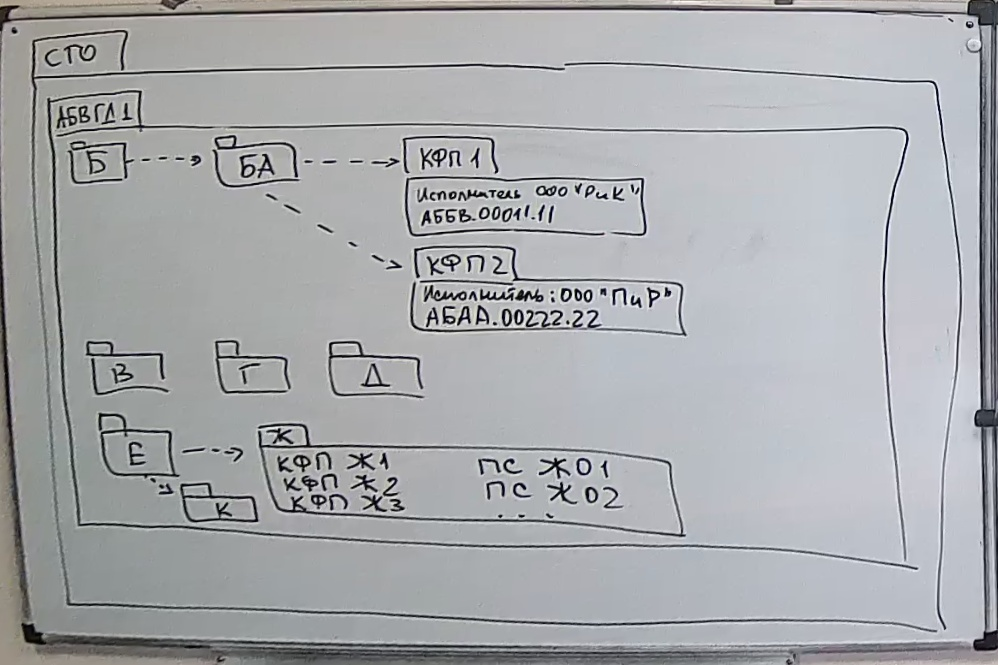 СТО
АБВГД1
Б
БА
КФП1
Исполнитель ООО "РиК"
АББВ.00011.11
КФП2
Исполнитель: ООО "ПиР"
АБАА.00222.22
В
Г
Д
Е
Ж
КФП Ж1
ПС Ж01
КФП Ж2
ПС Ж02
КФП Ж3
...
К